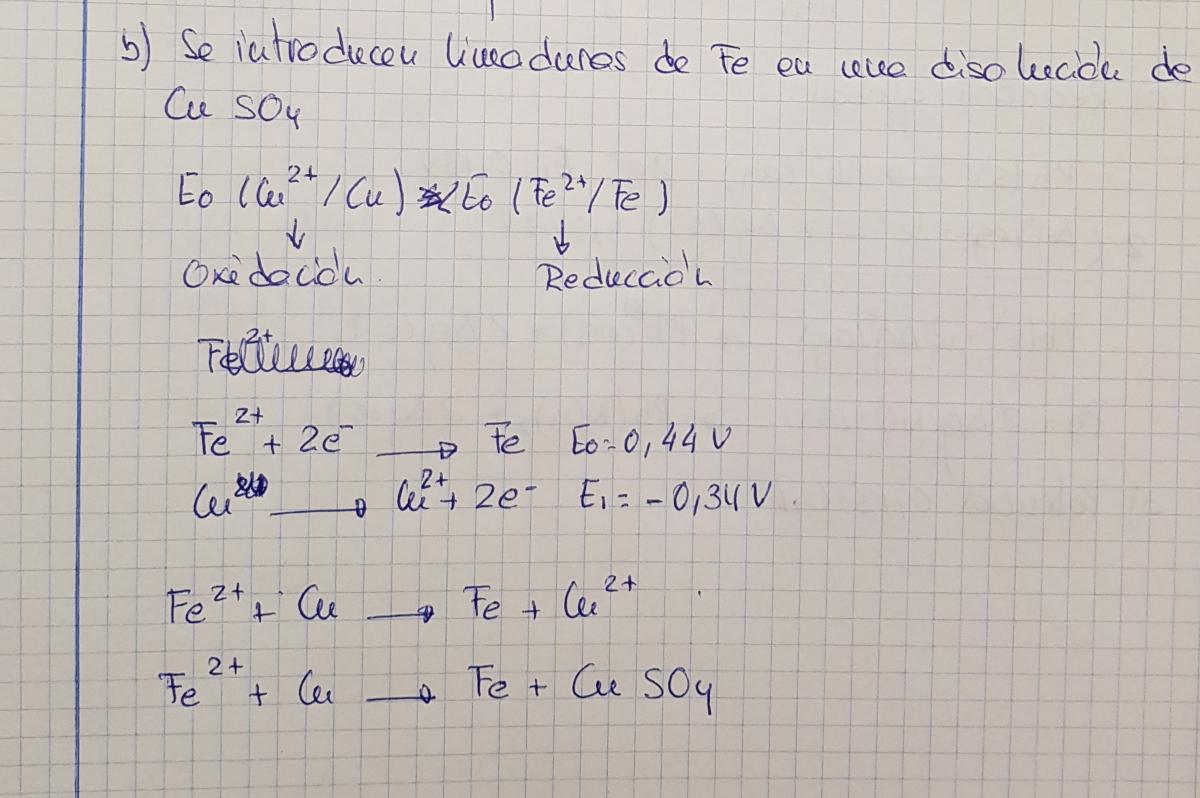 b) Se introducen limaduras de Fe en una disolución de
Cu SO4
Eo (Cu²⁺/Cu) < Eo (Fe²⁺/Fe)
↓ ↓
Oxidación. Reducción
Fe²⁺
Fe²⁺ + 2e⁻ → Fe Eo = 0,44 V
Cu → Cu²⁺ + 2e⁻ E₁ = -0,34 V.
Fe²⁺ + Cu → Fe + Cu²⁺
Fe²⁺ + Cu → Fe + Cu SO4